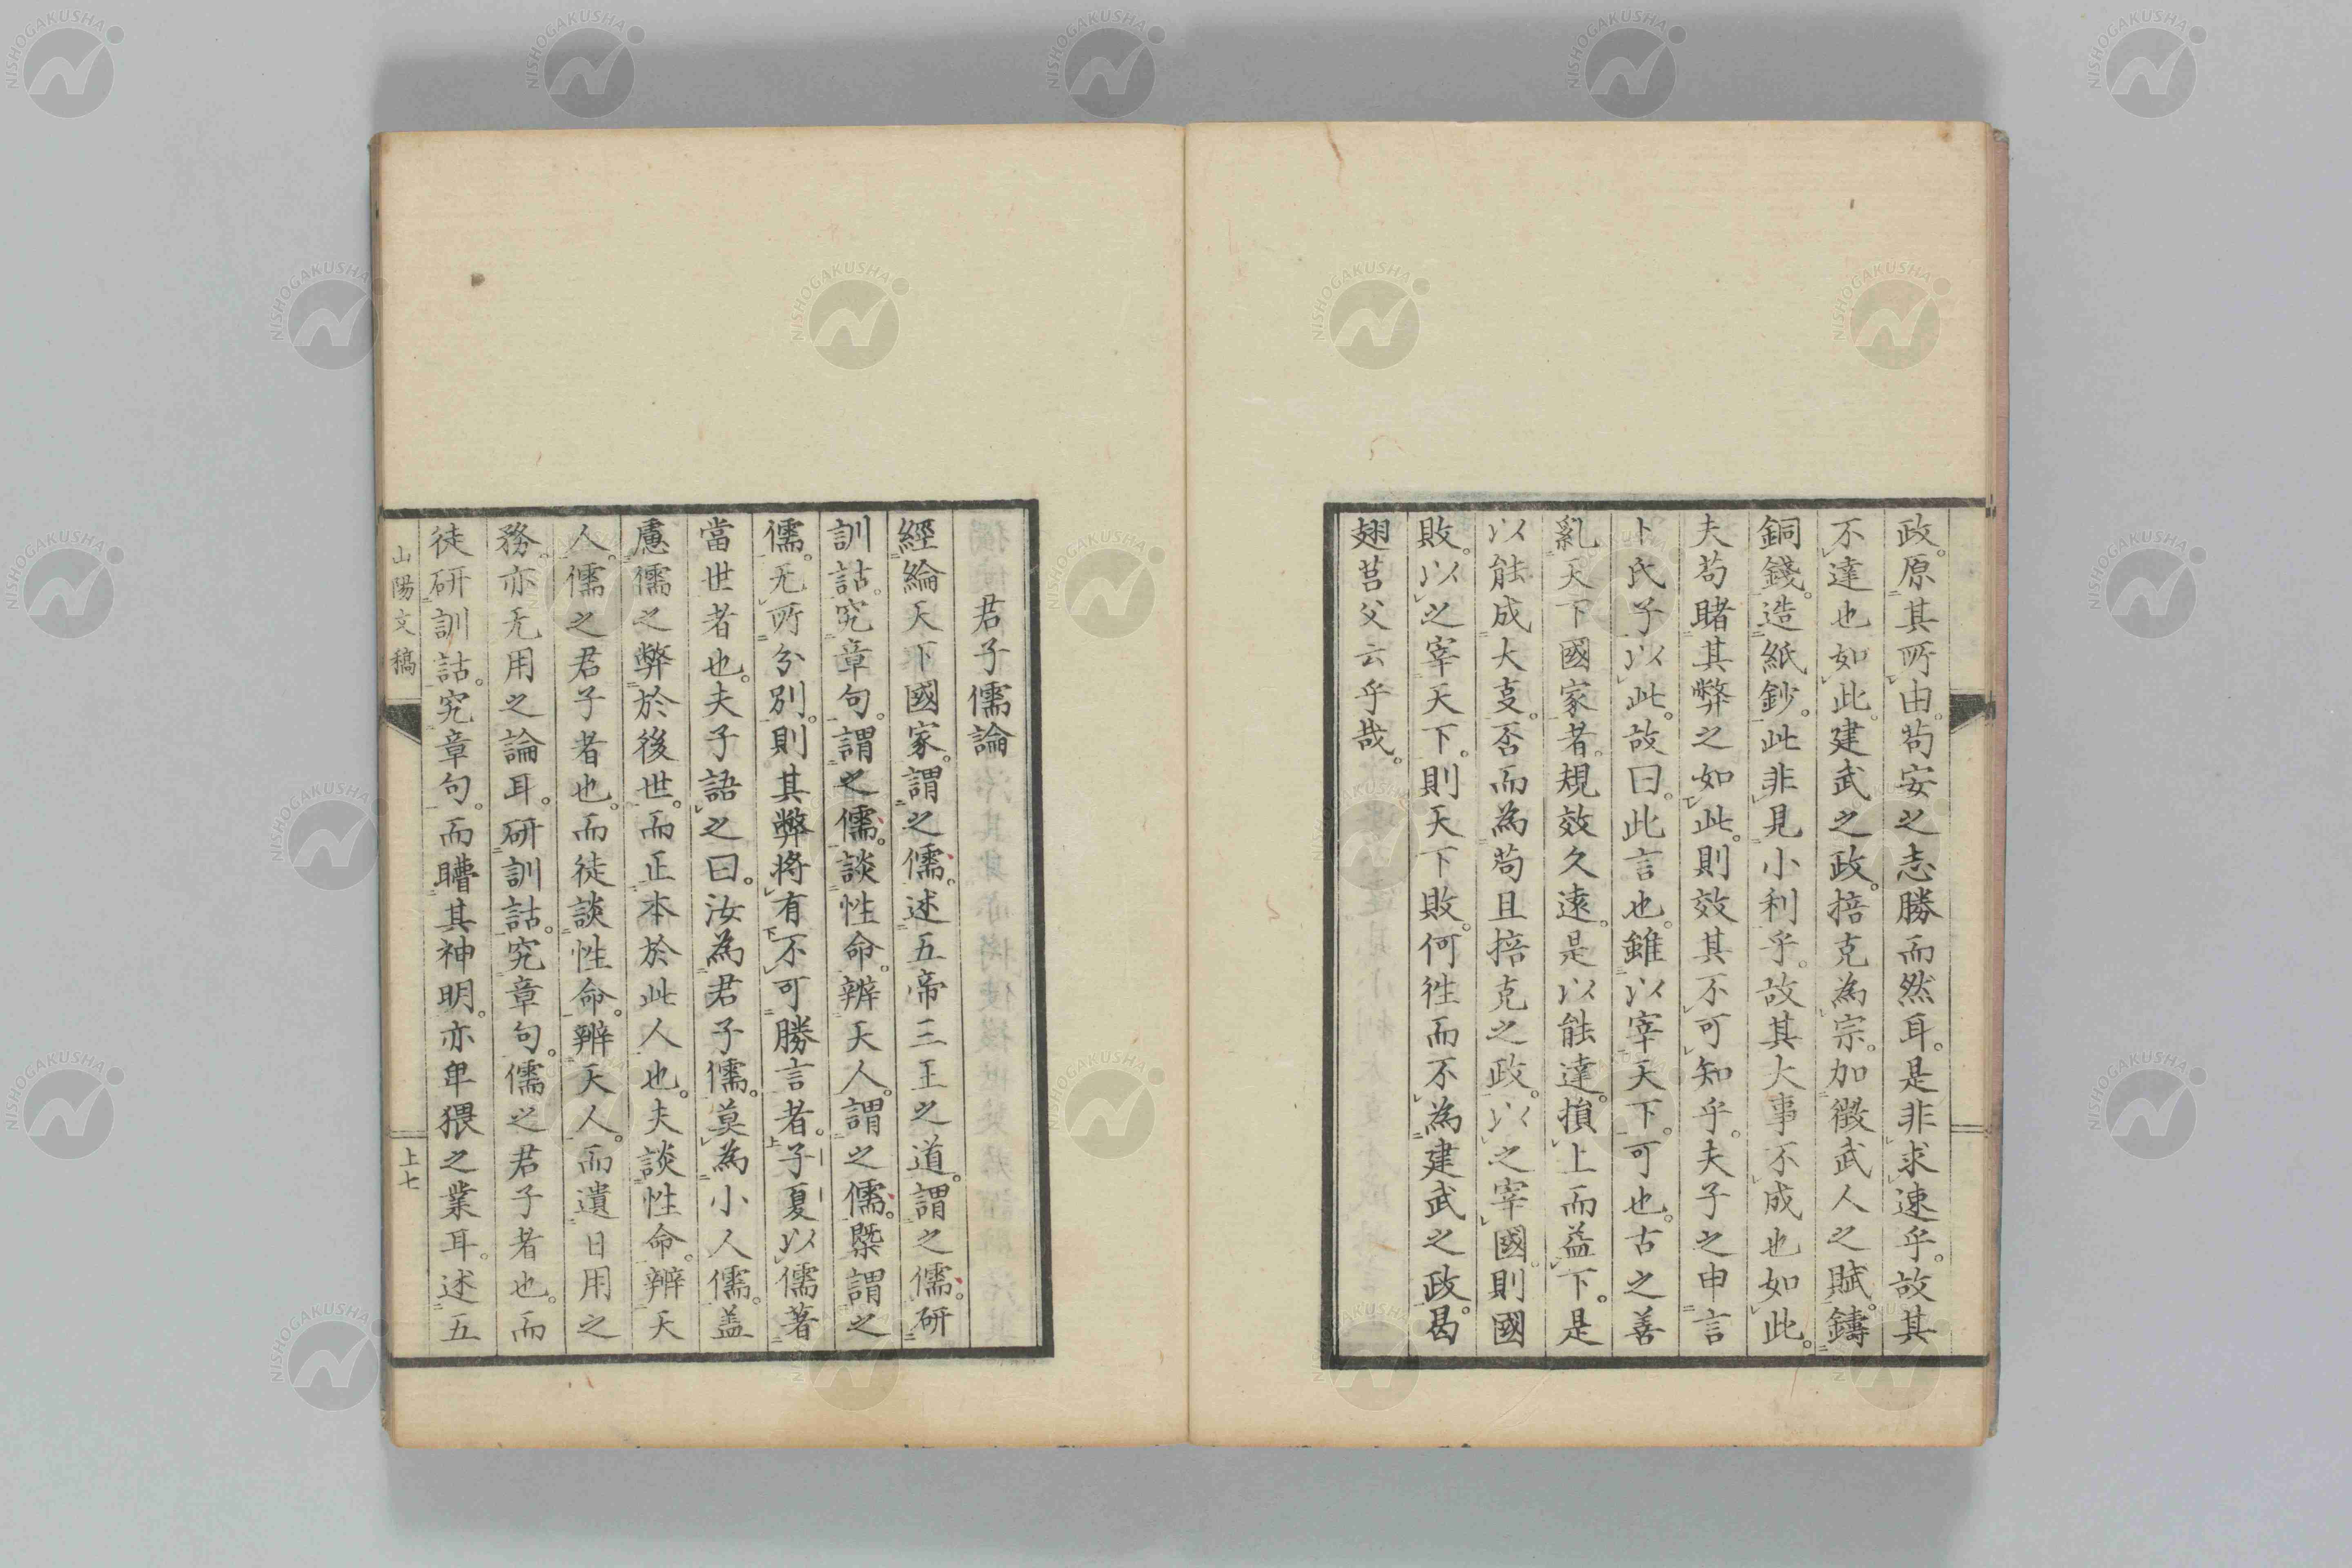 政。原其所由。苟安之志勝而然耳。是非求速乎。故其
不達也如此。建武之政。掊克為宗。加徵武人之賦。鑄
銅錢。造紙鈔。此非見小利乎。故其大事不成也如此。
夫苟睹其弊之如此。則效其不可知乎。夫子之申言
卜氏子以此。故曰。此言也。雖以宰天下。可也。古之善
亂天下國家者。規效久遠。是以能達。損上而益下。是
以能成大叓。否而為苟且掊克之政。以之宰國則國
敗。以之宰天下。則天下敗。何徃而不為建武之政。曷
翅莒父云乎哉。
君子儒論
經綸天下國家。謂之儒。述五帝三王之道。謂之儒。研
訓詁。究章句。謂之儒。談性命。辨天人。謂之儒。槩謂之
儒。无所分別。則其弊將有不可勝言者。子夏以儒著
當世者也。夫子語之曰。汝為君子儒。莫為小人儒。盖
慮儒之弊於後世。而正本於此人也。夫談性命。辨天
人。儒之君子者也。而徒談性命。辨天人。而遺日用之
務。亦无用之論耳。研訓詁。究章句。儒之君子者也。而
徒研訓詁。究章句。而瞶其神明。亦卑猥之業耳。述五
山陽文稿
上七
NISHOGAKUSHA